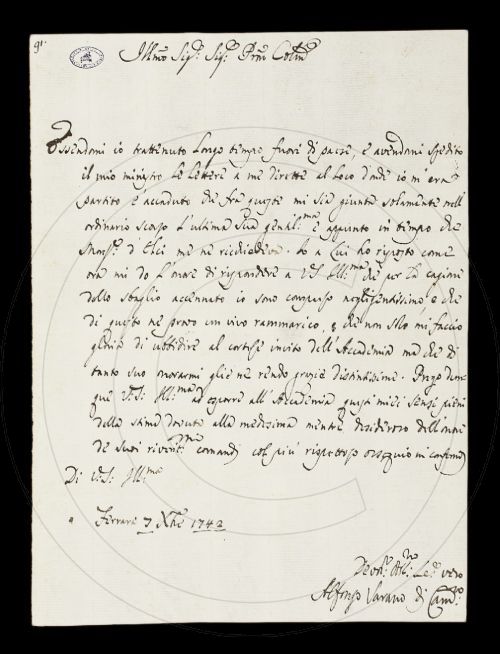 91.
Illmo Sigr. Sigr. Prn Colmo
Essendomi io trattenuto longo tempo fuori di paese, e avendomi spedito
il mio ministro le lettere a me dirette al loco donde io m'era
partito è accaduto che fra queste mi sia giunta solamente nell'
ordinario scorso l'ultima sua genal.ma e appunto in tempo che
Monsr. d'Elci me ne richiedeva. Io a lui ho risposto come
ora mi do l'onore di rispondere a V.S. Illma che per la cagione
dello sbaglio accennato io sono comparso negligentissimo e che
di questo ne provo un vivo rammarico, e che non solo mi faccio
gloria di ubbidire al cortese invito dell'Accademia ma che di
tanto suo onorarmi glie ne rendo grazie distintissime. Prego dun
que V.S. Illma ad esporre all'Accademia questi miei sensi pieni
della stima dovuta alla medesima mentre desideroso dell'onore
de suoi riveriti comandi col più rispettoso ossequio mi confermo
Di V.S. Illma
Ferrara 7 Xbre 1742
Devo. Obl. Se. vero
Alfonso Varano di Cam.